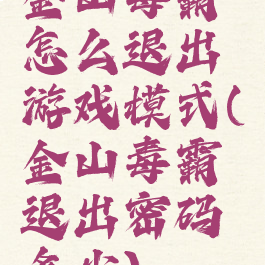 金山毒霸
怎么退出
游戏模式(
金山毒霸
退出密码